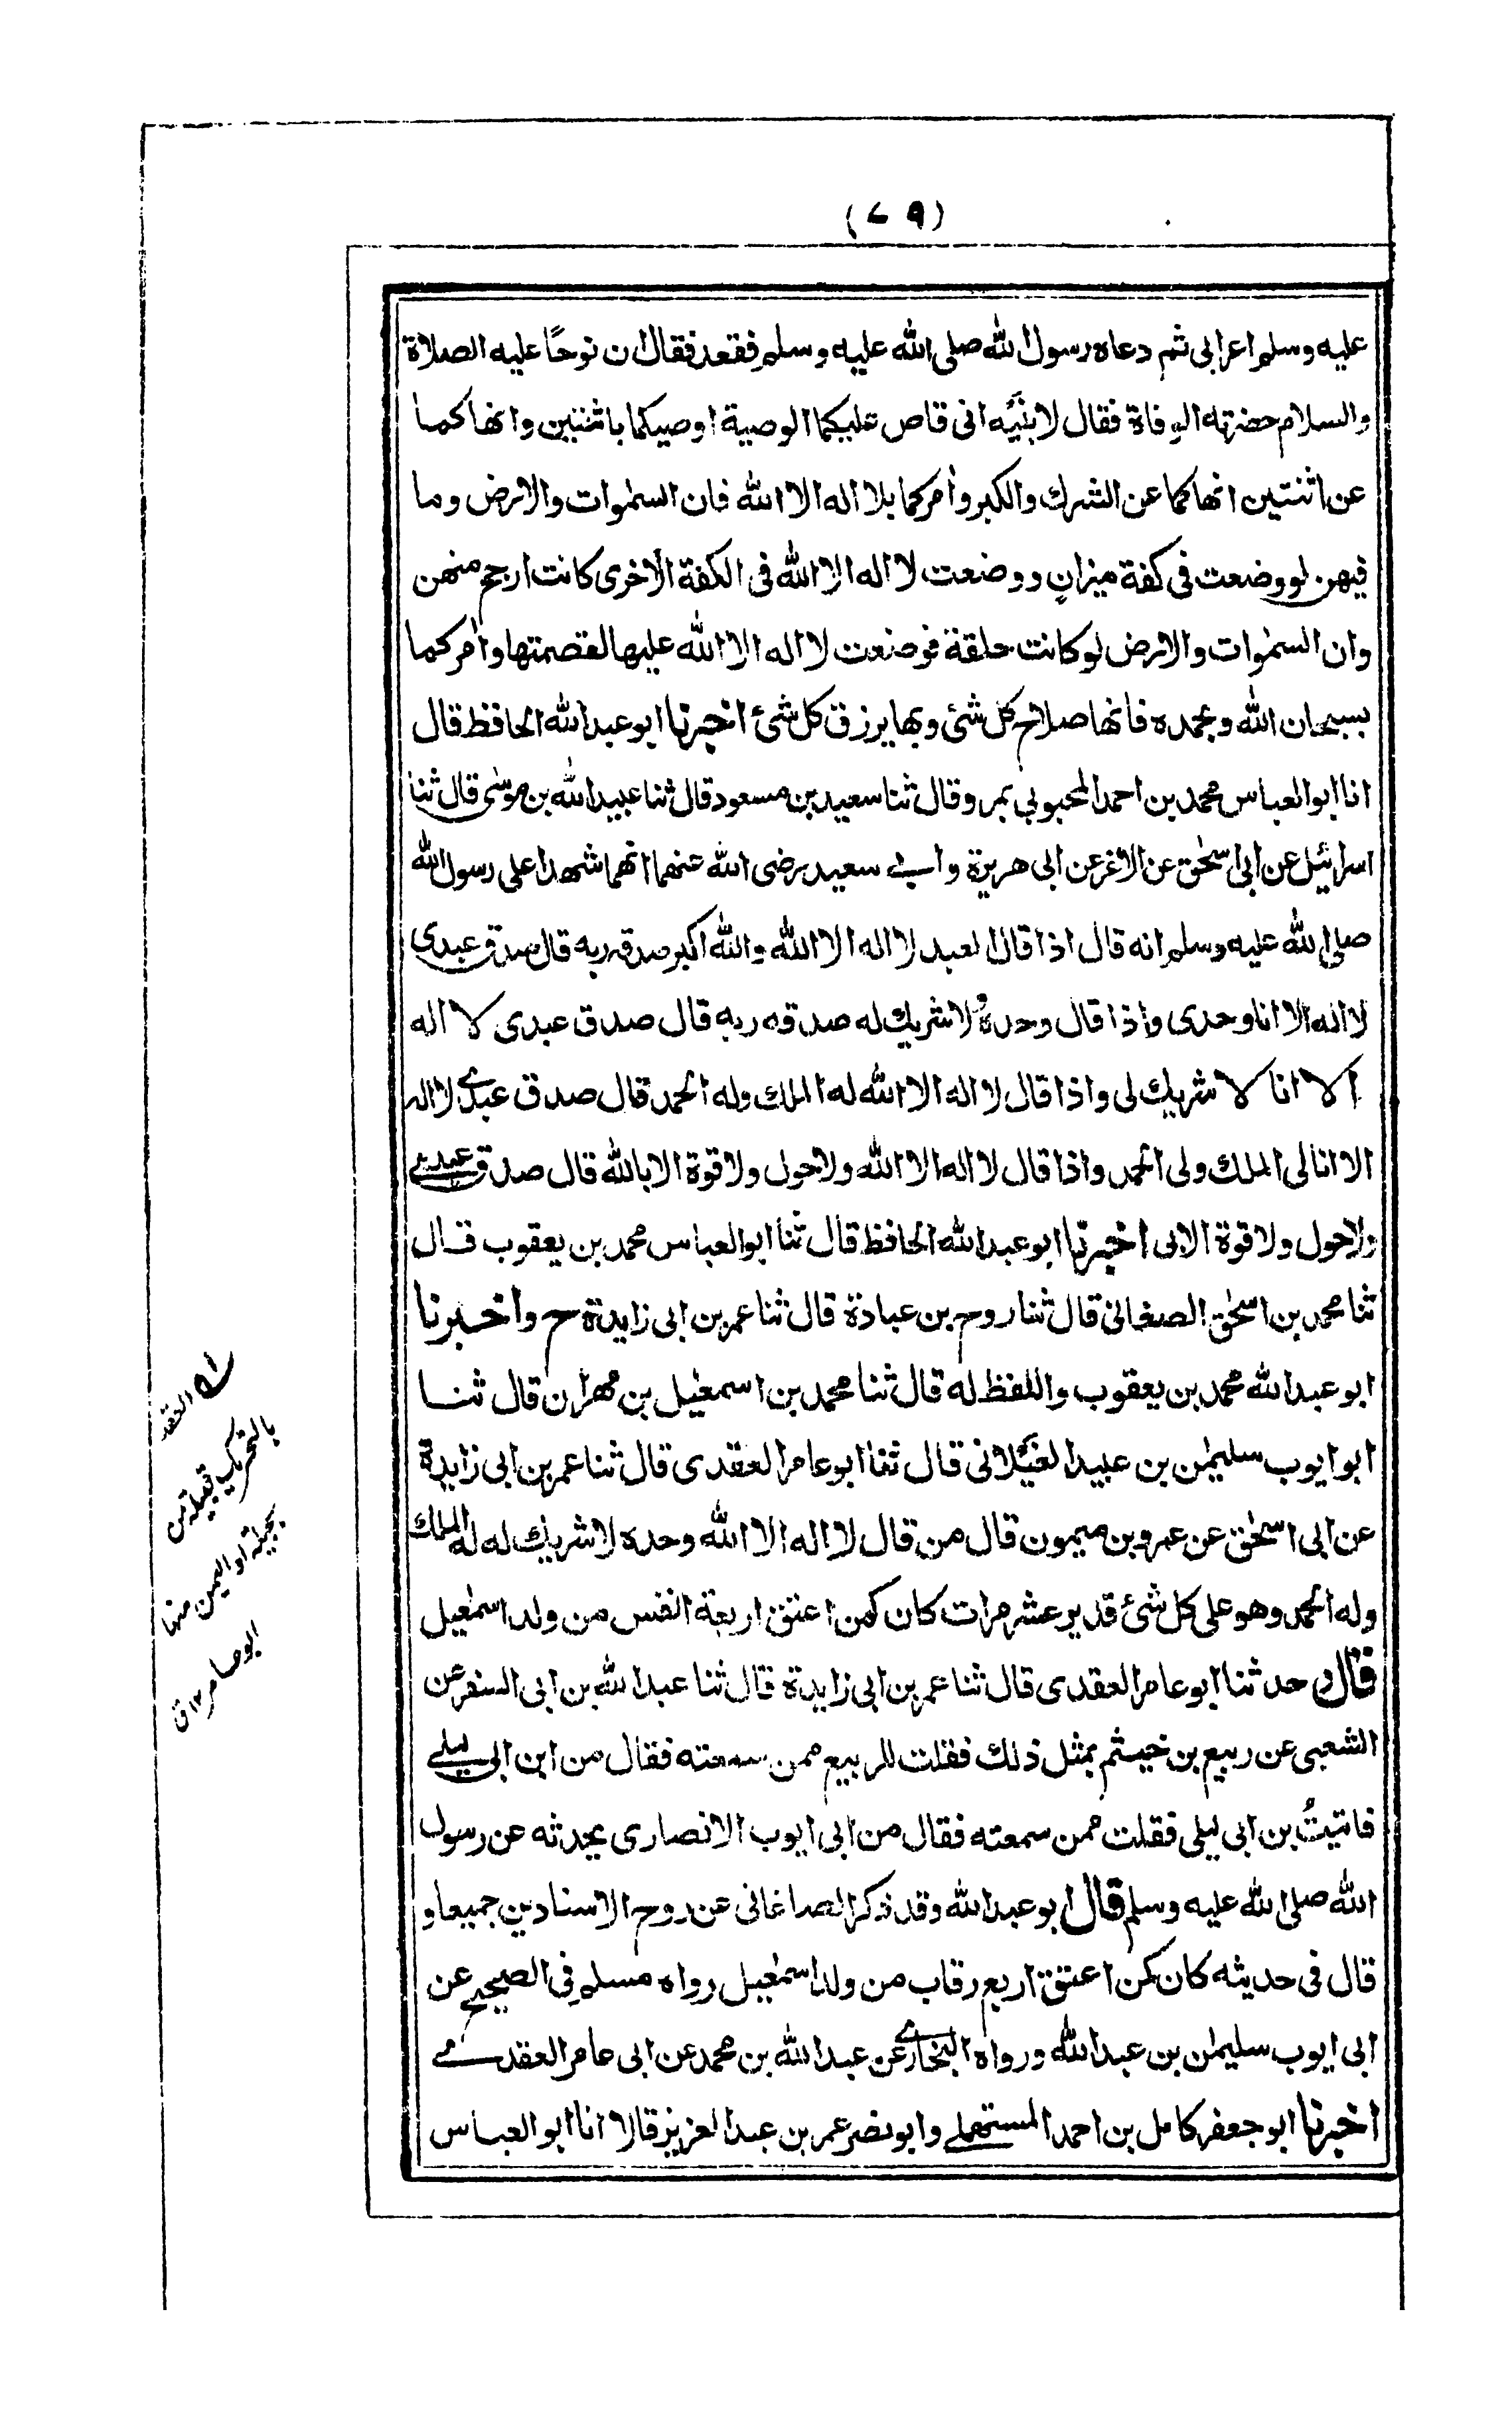 (٧٩)
عليه وسلم اعرابى ثم دعاه رسول الله صلى الله عليه وسلم فقعد فقال ان نوحًا عليه الصلاة
والسلام حضرته الوفاة فقال لابنَيْه انى قاص عليكما الوصية اوصيكما باثنتين وانهاكما
عن اثنتين انهاكما عن الشرك والكبر وامركما بلا اله الا الله فان السمٰوات والارض وما
فيهن لو وضعت فى كفة ميزان ووضعت لا اله الا الله فى الكفة الاخرى كانت ارجح منهن
وان السمٰوات والارض لو كانت حلقة فوضعت لا اله الا الله عليها لقصمتها وامركما
بسبحان الله وبحمده فانها صلاح كل شئ وبها يرزق كل شئ اخبرنا ابو عبد الله الحافظ قال
انا ابو العباس محمد بن احمد المحبوبى بمرو قال ثنا سعيد بن مسعود قال ثنا عبيد الله بن موسٰى قال ثنا
اسرائيل عن ابى اسحٰق عن الاغر عن ابى هريرة وابى سعيد رضى الله عنهما انهما شهدا على رسول الله
صلى الله عليه وسلم انه قال اذا قال العبد لا اله الا الله والله اكبر صدقه ربه قال صدق عبدى
لا اله الا انا وحدى واذا قال وحدهُ لا شريك له صدقه ربه قال صدق عبدى لا اله
الا انا لا شريك لى واذا قال لا اله الا الله له الملك وله الحمد قال صدق عبدى لا اله
الا انا لى الملك ولى الحمد واذا قال لا اله الا الله ولا حول ولا قوة الا بالله قال صدق عبدى
ولا حول ولا قوة الا بى اخبرنا ابو عبد الله الحافظ قال ثنا ابو العباس محمد بن يعقوب قال
ثنا محمد بن اسحٰق الصغانى قال ثنا روح بن عبادة قال ثنا عمر بن ابى زايدة ح واخبرنا
ابو عبد الله محمد بن يعقوب واللفظ له قال ثنا محمد بن اسمعيل بن مهران قال ثنا
ابو ايوب سليمٰن بن عبيد الغَيْلانى قال ثنا ابو عامر العقدى قال ثنا عمر بن ابى زايدة
عن ابى اسحٰق عن عمرو بن ميمون قال من قال لا اله الا الله وحده لا شريك له له الملك
وله الحمد وهو على كل شئ قدير عشر مرات كان كمن اعتق اربعة انفس من ولد اسمٰعيل
قال حدثنا ابو عامر العقدى قال ثنا عمر بن ابى زايدة قال ثنا عبد الله بن ابى السفر عن
الشعبى عن ربيع بن خيثم بمثل ذلك فقلت للربيع ممن سمعته فقال من ابن ابى ليلى
فاتيتُ بن ابى ليلى فقلت ممن سمعته فقال من ابى ايوب الانصارى يحدثه عن رسول
الله صلى الله عليه وسلم قال ابو عبد الله وقد ذكر الصاغانى عن روح الاسنادين جميعا و
قال فى حديثه كان كمن اعتق اربع رقاب من ولد اسمٰعيل رواه مسلم فى الصحيح عن
ابى ايوب سليمٰن بن عبد الله ورواه البخارى عن عبد الله بن محمد عن ابى عامر العقدى
اخبرنا ابو جعفر كامل بن احمد المستملى وابو نصر عمر بن عبد العزيز قالا انا ابو العباس
بالتحريك قبيلة من
بجيلة او اليمن منها